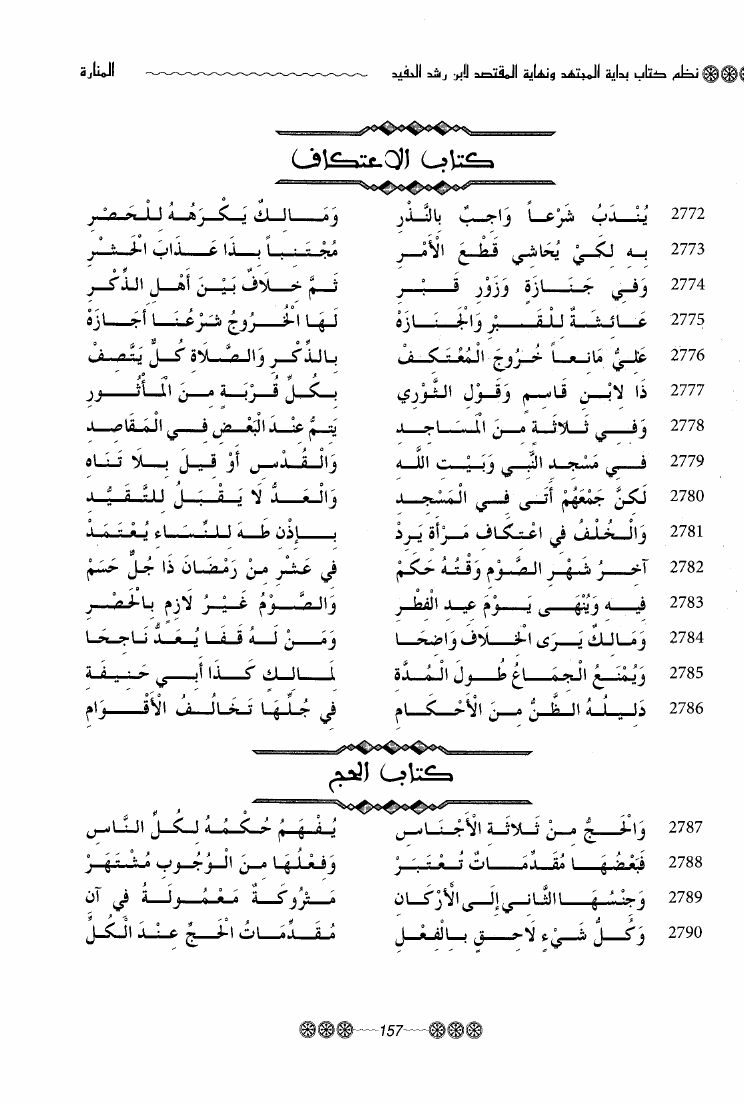 نظم كتاب بداية المجتهد ونهاية المقتصد لابن رشد الحفيد المنارة
كتاب الاعتكاف
2772 يُنْدَبُ شَرْعاً وَاجِبٌ بِالنَّذْرِ وَمَالِكٌ يَكْرَهُهُ لِلْحَصْرِ
2773 بِهِ لِكَيْ يُحَاشِي قَطْعَ الأَمْرِ مُجْتَنِباً بِذَا عَذَابَ الْحَشْرِ
2774 وَفِي جَنَازَةٍ وَزَوْرِ قَبْرِ ثَمَّ خِلاَفٌ بَيْنَ أَهْلِ الذِّكْرِ
2775 عَائِشَةٌ لِلْقَبْرِ وَالْجَنَازَهْ لَهَا الْخُرُوجُ شَرْعُنَا أَجَازَهْ
2776 عَلِيٌّ مَانِعاً خُرُوجَ الْمُعْتَكِفْ بِالذِّكْرِ وَالصَّلاَةِ كُلٌّ يَتَّصِفْ
2777 ذَا لاِبْنِ قَاسِمٍ وَقَوْلِ الثَّوْرِي بِكُلِّ قُرْبَةٍ مِنَ الْمَأْثُورِ
2778 وَفِي ثَلاَثَةٍ مِنَ الْمَسَاجِدِ يَتِمُّ عِنْدَ الْبَعْضِ فِي الْمَقَاصِدِ
2779 فِي مَسْجِدِ النَّبِي وَبَيْتِ اللَّهِ وَالْقُدْسِ أَوْ قِيلَ بِلاَ تَنَاهِ
2780 لَكِنَّ جَمْعَهُمْ أَتَى فِي الْمَسْجِدِ وَالْعَدُّ لاَ يَقْبَلُ لِلتَّقَيُّدِ
2781 وَالْخُلْفُ فِي اعْتِكَافِ مَرْأَةٍ يَرِدْ بِإِذْنِ طَهَ لِلنِّسَاءِ يُعْتَمَدْ
2782 آخِرُ شَهْرِ الصَّوْمِ وَقْتُهُ حَكَمْ فِي عَشْرٍ مِنْ رَمْضَانَ ذَا جُلٌّ حَسَمْ
2783 فِيهِ وَيُنْهَى يَوْمَ عِيدِ الْفِطْرِ وَالصَّوْمُ غَيْرُ لاَزِمٍ بِالْحَصْرِ
2784 وَمَالِكٌ يَرَى الْخِلاَفَ وَاضِحَا وَمَنْ لَهُ قَفَا يُعَدُّ نَاجِحَا
2785 وَيُمْنَعُ الْجِمَاعُ طُولَ الْمُدَّةِ لِمَالِكٍ كَذَا أَبِي حَنِيفَةِ
2786 دَلِيلُهُ الظَّنُّ مِنَ الأَحْكَامِ فِي جُلِّهَا تَخَالُفُ الأَقْوَامِ
كتاب الحج
2787 وَالْحَجُّ مِنْ ثَلاَثَةِ الأَجْنَاسِ يُفْهَمُ حُكْمُهُ لِكُلِّ النَّاسِ
2788 فَبَعْضُهَا مُقَدِّمَاتٌ تُعْتَبَرْ وَفِعْلُهَا مِنَ الْوُجُوبِ مُشْتَهَرْ
2789 وَجِنْسُهَا الثَّانِي إِلَى الأَرْكَانِ مَتْرُوكَةٌ مَعْمُولَةٌ فِي آنِ
2790 وَكُلُّ شَيْءٍ لاَحِقٍ بِالْفِعْلِ مُقَدِّمَاتُ الْحَجِّ عِنْدَ الْكُلِّ
157